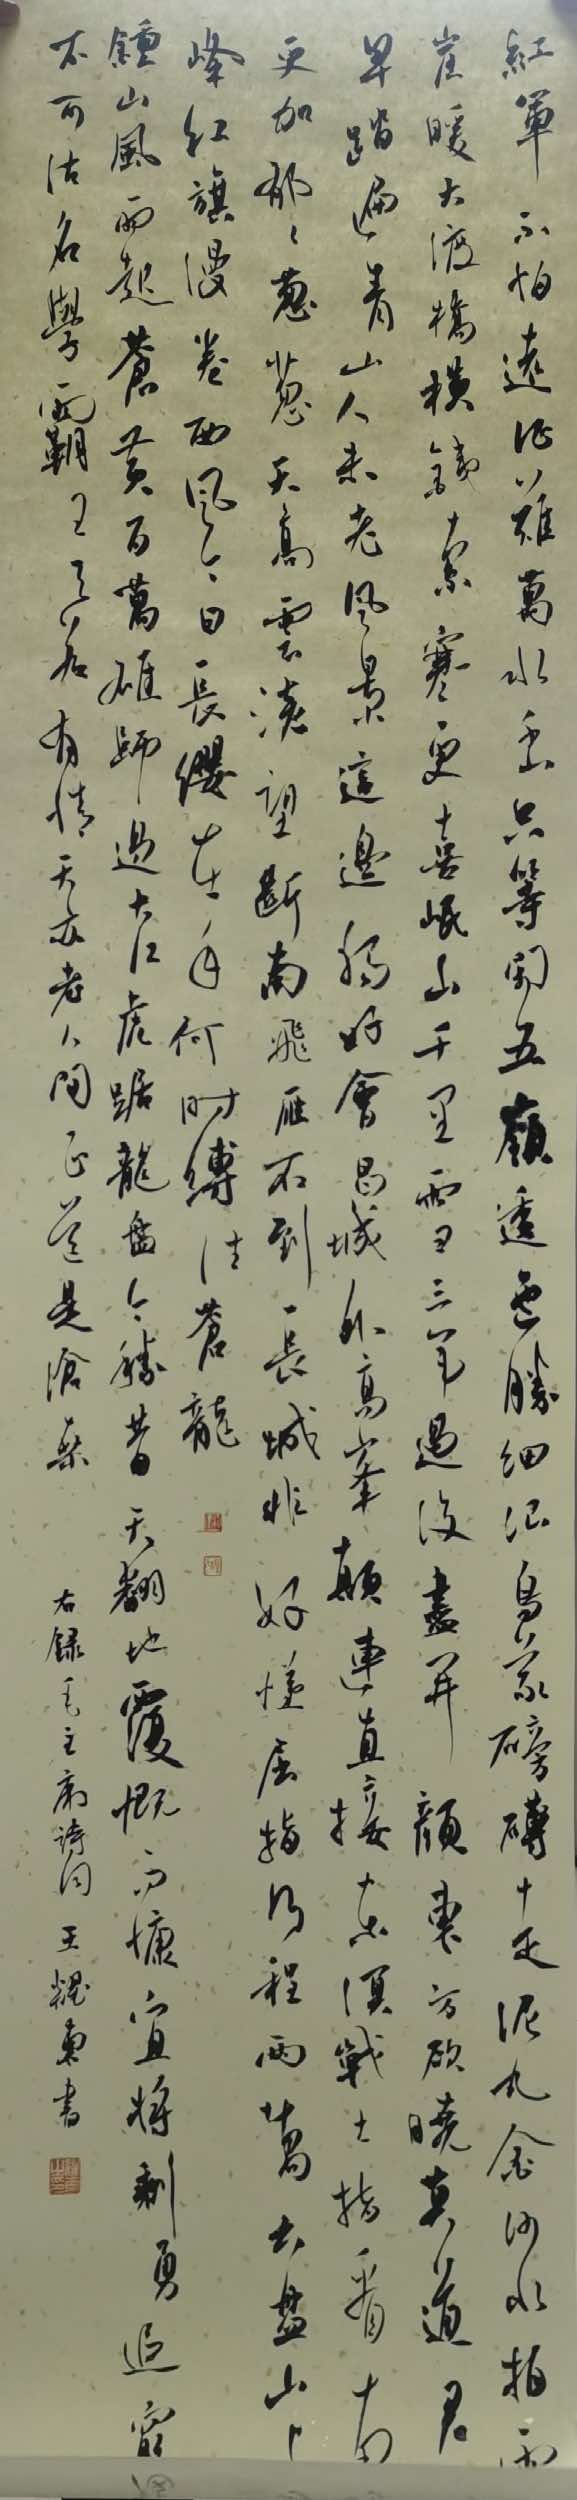 紅軍不怕遠征難萬水千山只等閑五嶺逶迤騰細浪烏蒙磅礴走泥丸金沙水拍雲
崖暖大渡橋橫鐵索寒更喜岷山千里雪三軍過後盡開顏東方欲曉莫道君
早踏遍青山人未老風景這邊獨好會昌城外高峰顛連直接東溟戰士指看南
更加郁々蔥蔥天高雲淡望斷南飛雁不到長城非好漢屈指行程兩萬六盤山上
峰紅旗漫卷西風今日長纓在手何時縛住蒼龍
鍾山風雨起蒼黃百萬雄師過大江虎踞龍盤今勝昔天翻地覆慨而慷宜將剩勇追窮
不可沽名學霸王天若有情天亦老人間正道是滄桑
右錄毛主席詩詞 王耀東書